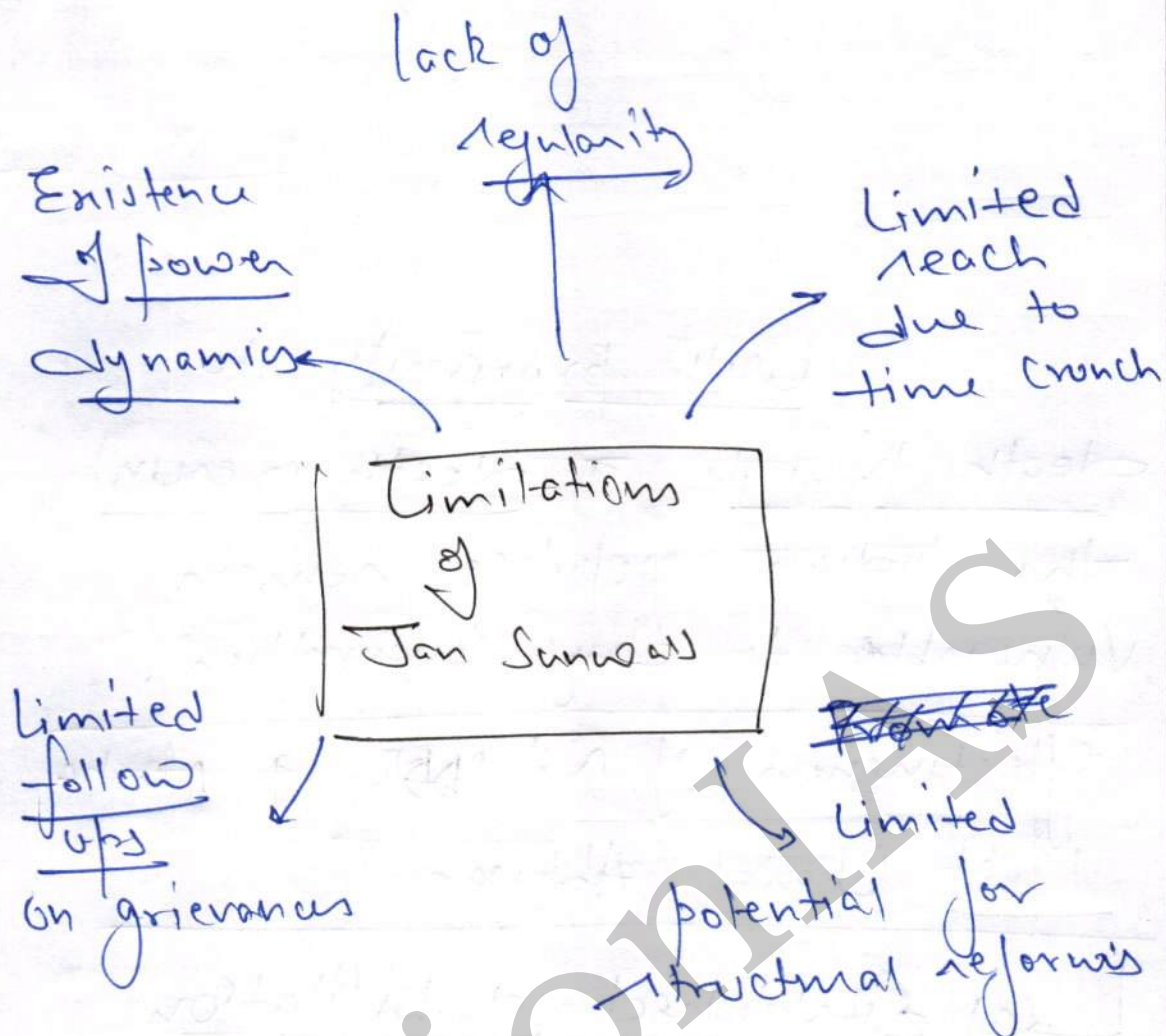 lack of
regularity
Existence
of power
dynamics
Limited
reach
due to
time crunch
Limitations
of
Jan Sunwais
Limited
follow
ups
on grievances
Limited
potential for
structural reforms
onIAS